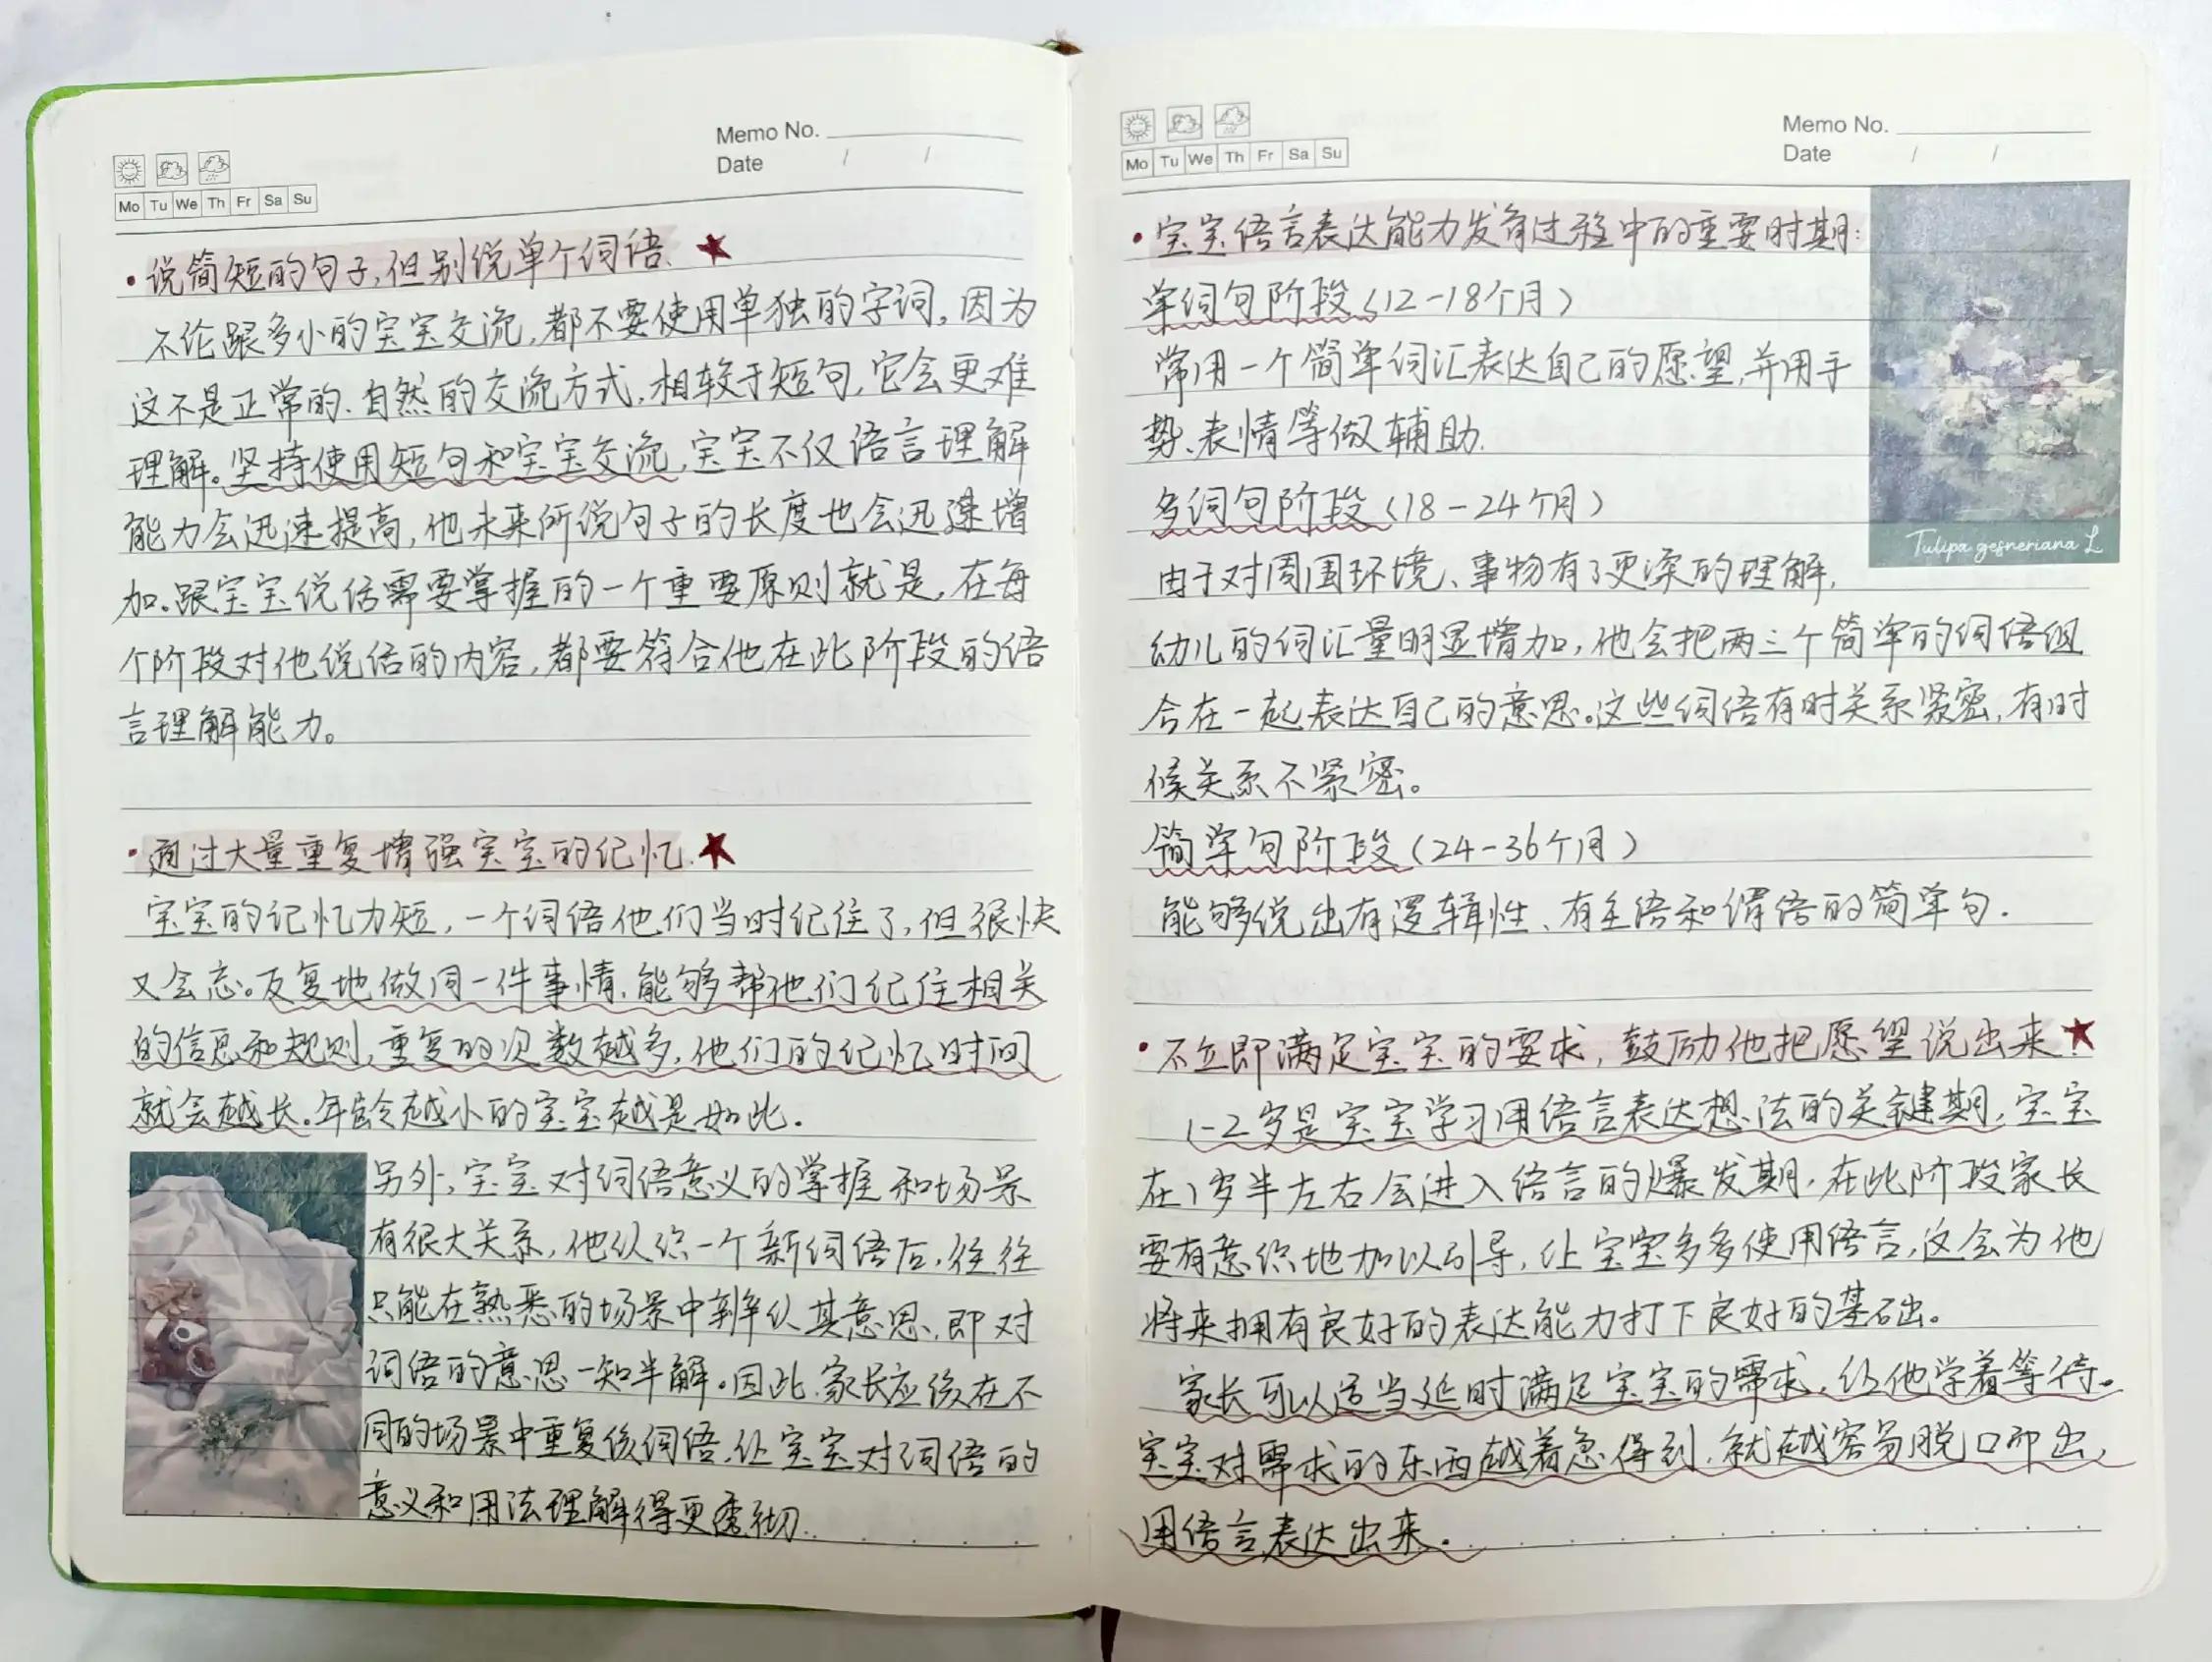 Memo No.
Date / /
Mo Tu We Th Fr Sa Su
·说简短的句子,但别说单个词语.
不论跟多小的宝宝交流,都不要使用单独的字词,因为
这不是正常的、自然的交流方式,相较于短句,它会更难
理解。坚持使用短句和宝宝交流,宝宝不仅语言理解
能力会迅速提高,他未来所说句子的长度也会迅速增
加。跟宝宝说话需要掌握的一个重要原则就是,在每
个阶段对他说话的内容,都要符合他在此阶段的语
言理解能力。
·通过大量重复增强宝宝的记忆.
宝宝的记忆力短,一个词语他们当时记住了,但很快
又会忘。反复地做同一件事情,能够帮他们记住相关
的信息和规则,重复的次数越多,他们的记忆时间
就会越长.年龄越小的宝宝越是如此.
另外,宝宝对词语意义的掌握和场景
有很大关系,他认识一个新词语后,往往
只能在熟悉的场景中辨认其意思,即对
词语的意思一知半解。因此,家长应该在不
同的场景中重复该词语,让宝宝对词语的
意义和用法理解得更透彻.
Memo No.
Date / /
Mo Tu We Th Fr Sa Su
·宝宝语言表达能力发育过程中的重要时期:
单词句阶段(12-18个月)
常用一个简单词汇表达自己的愿望,并用手
势、表情等做辅助.
多词句阶段(18-24个月)
由于对周围环境、事物有了更深的理解,
幼儿的词汇量明显增加,他会把两三个简单的词语组
合在一起表达自己的意思。这些词语有时关系紧密,有时
候关系不紧密。
简单句阶段(24-36个月)
能够说出有逻辑性、有主语和谓语的简单句.
Tulipa gesneriana L
·不立即满足宝宝的要求,鼓励他把愿望说出来.
1-2岁是宝宝学习用语言表达想法的关键期,宝宝
在1岁半左右会进入语言的爆发期,在此阶段家长
要有意识地加以引导,让宝宝多多使用语言,这会为他
将来拥有良好的表达能力打下良好的基础。
家长可以适当延时满足宝宝的需求,让他学着等待。
宝宝对需求的东西越着急得到,就越容易脱口而出,
用语言表达出来.